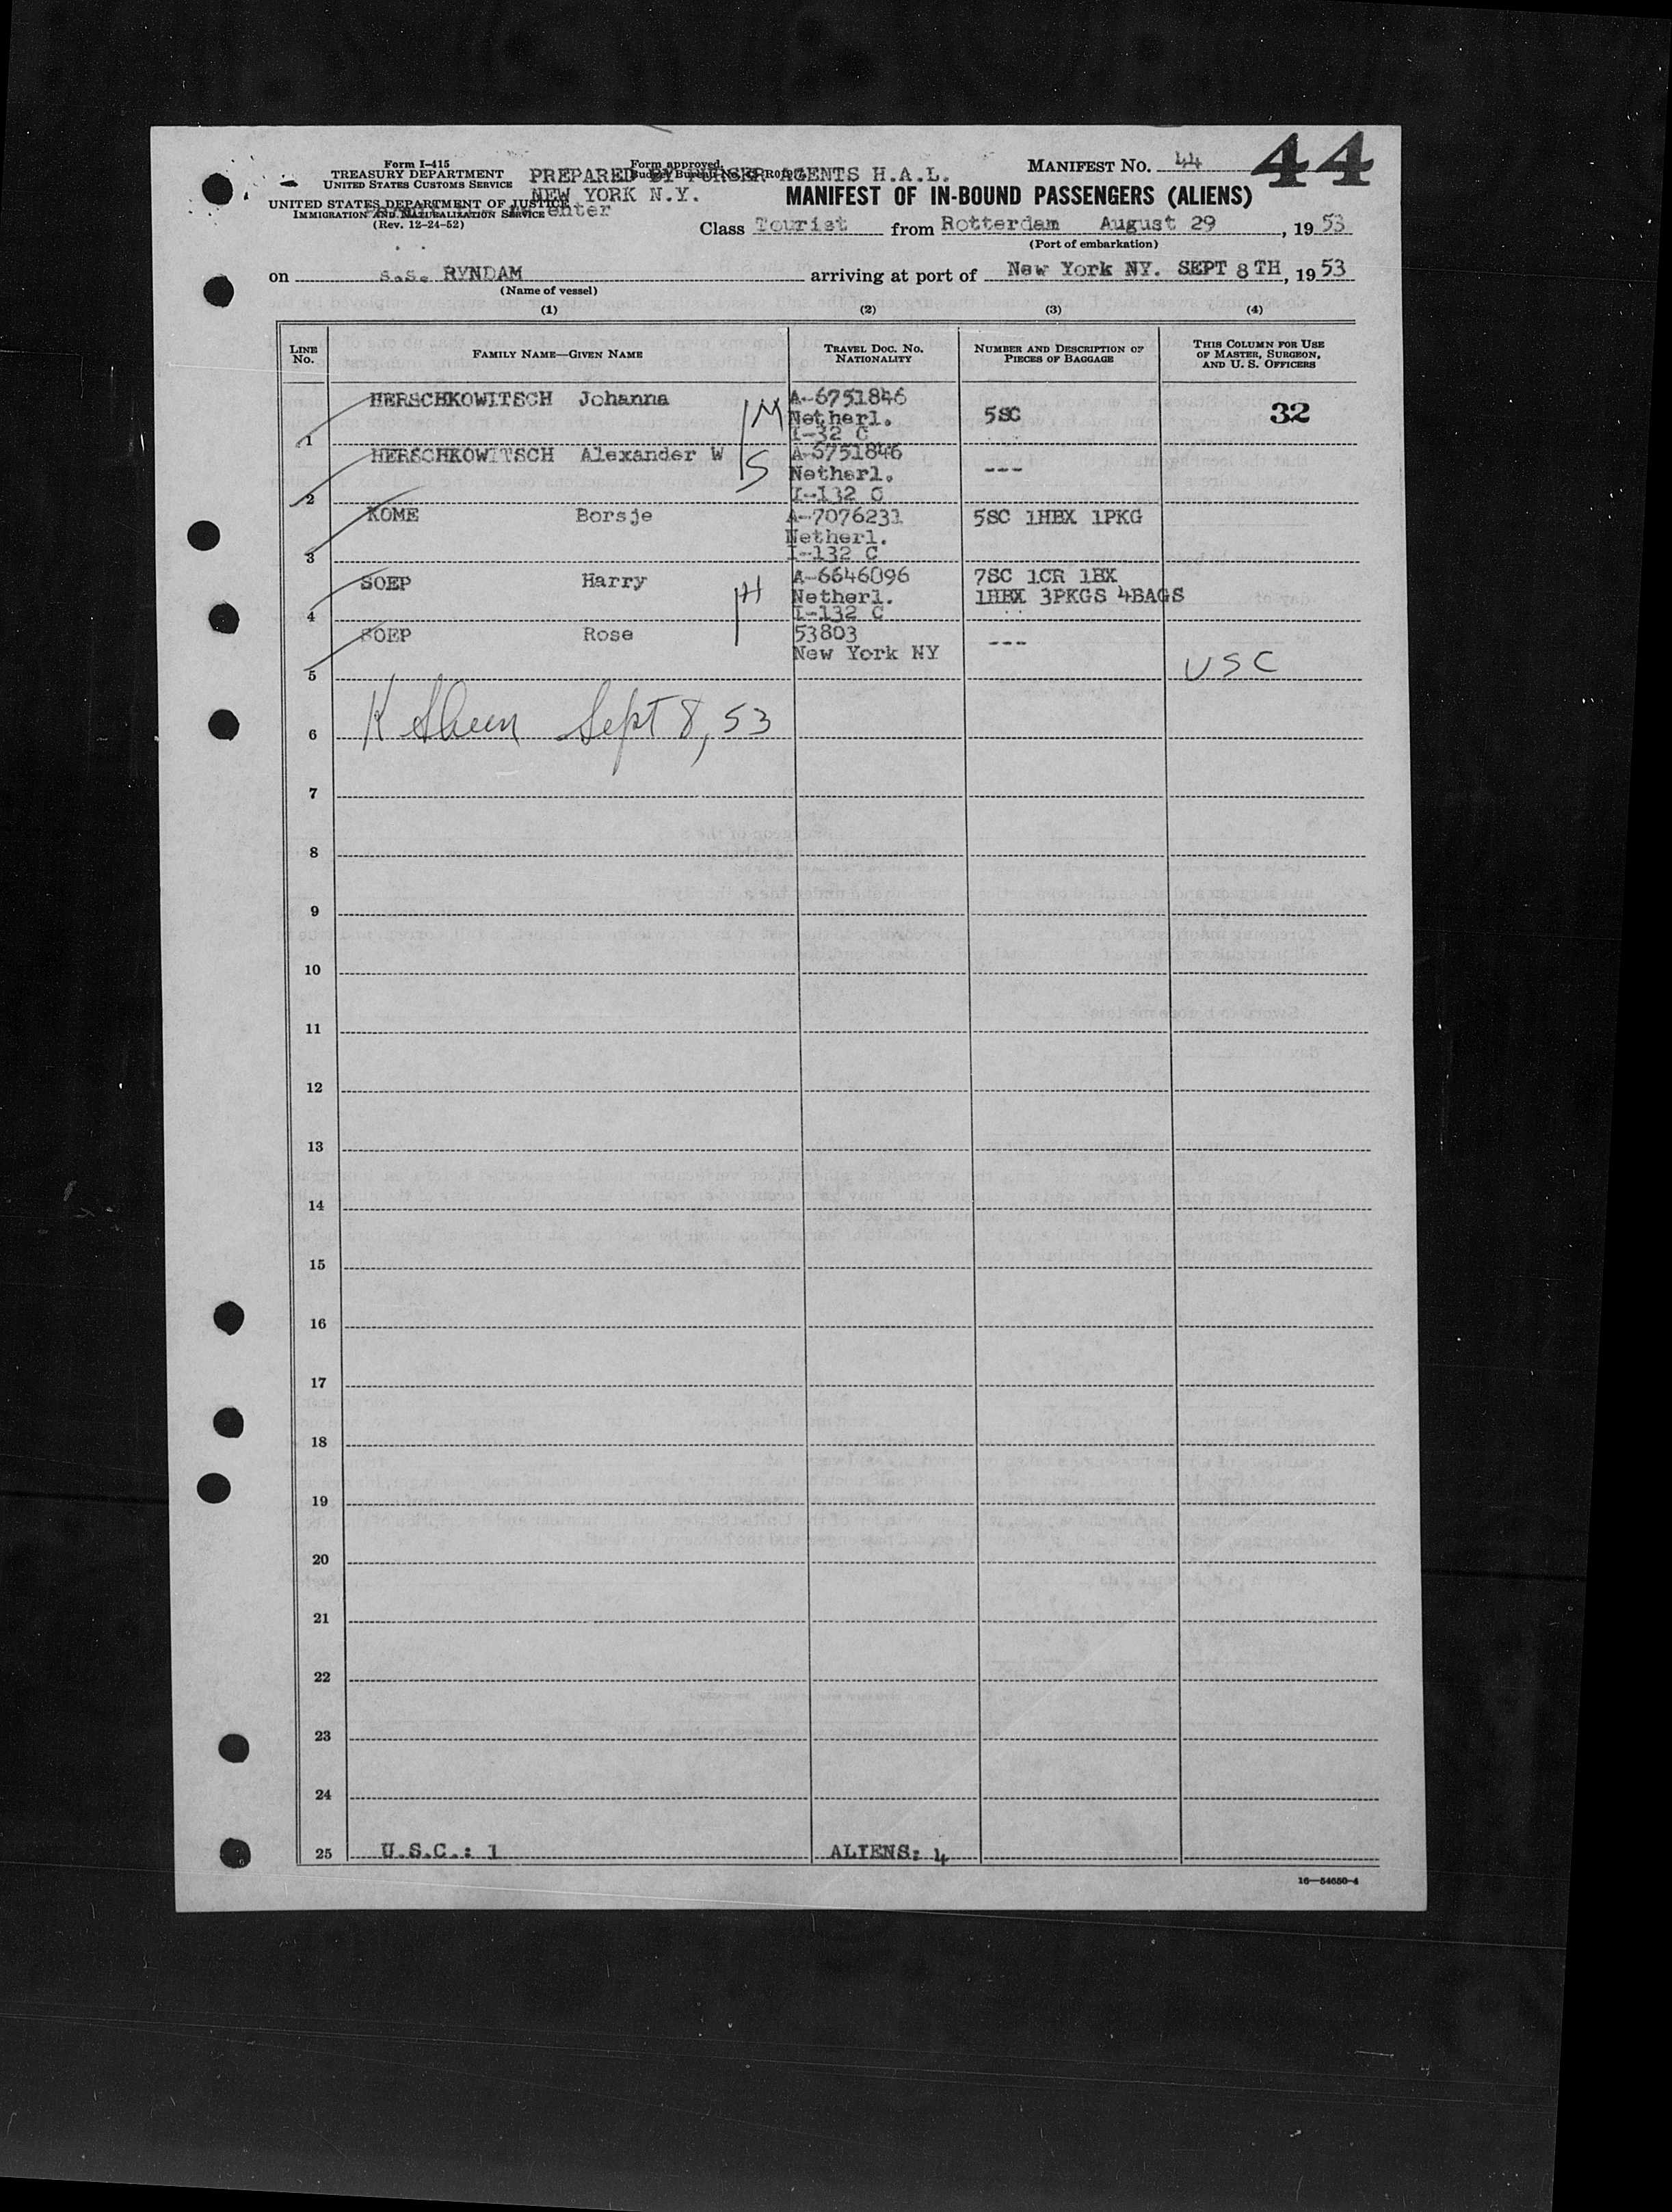 Form I-415
TREASURY DEPARTMENT
UNITED STATES CUSTOMS SERVICE
UNITED STATES DEPARTMENT OF JUSTICE
IMMIGRATION AND NATURALIZATION SERVICE
(Rev. 12-24-52)
Form approved.
PREPARED BY PURSER AGENTS H.A.L.
NEW YORK N.Y.
MANIFEST NO. 44
44
MANIFEST OF IN-BOUND PASSENGERS (ALIENS)
Class Tourist from Rotterdam August 29, 1953
(Port of embarkation)
on s.s. RYNDAM arriving at port of New York NY. SEPT 8TH, 1953
(Name of vessel)
(1) (2) (3) (4)
LINE NO. FAMILY NAME—GIVEN NAME TRAVEL DOC. NO. NATIONALITY NUMBER AND DESCRIPTION OF PIECES OF BAGGAGE THIS COLUMN FOR USE OF MASTER, SURGEON, AND U. S. OFFICERS
HERSCHKOWITSCH Johanna M A-6751846
Netherl. 5SC 32
1 I-32 C
HERSCHKOWITSCH Alexander W S A-6751846
Netherl. ---
2 I-132 C
KOME Borsje A-7076231 5SC 1HBX 1PKG
Netherl.
3 I-132 C
SOEP Harry H A-6646096 7SC 1CR 1BX
Netherl. 1HBX 3PKGS 4BAGS
4 I-132 C
SOEP Rose 53803 ---
New York NY
5 USC
6 K Sheen Sept 8, 53
7
8
9
10
11
12
13
14
15
16
17
18
19
20
21
22
23
24
25 U.S.C.: 1 ALIENS: 4
16—54650-4